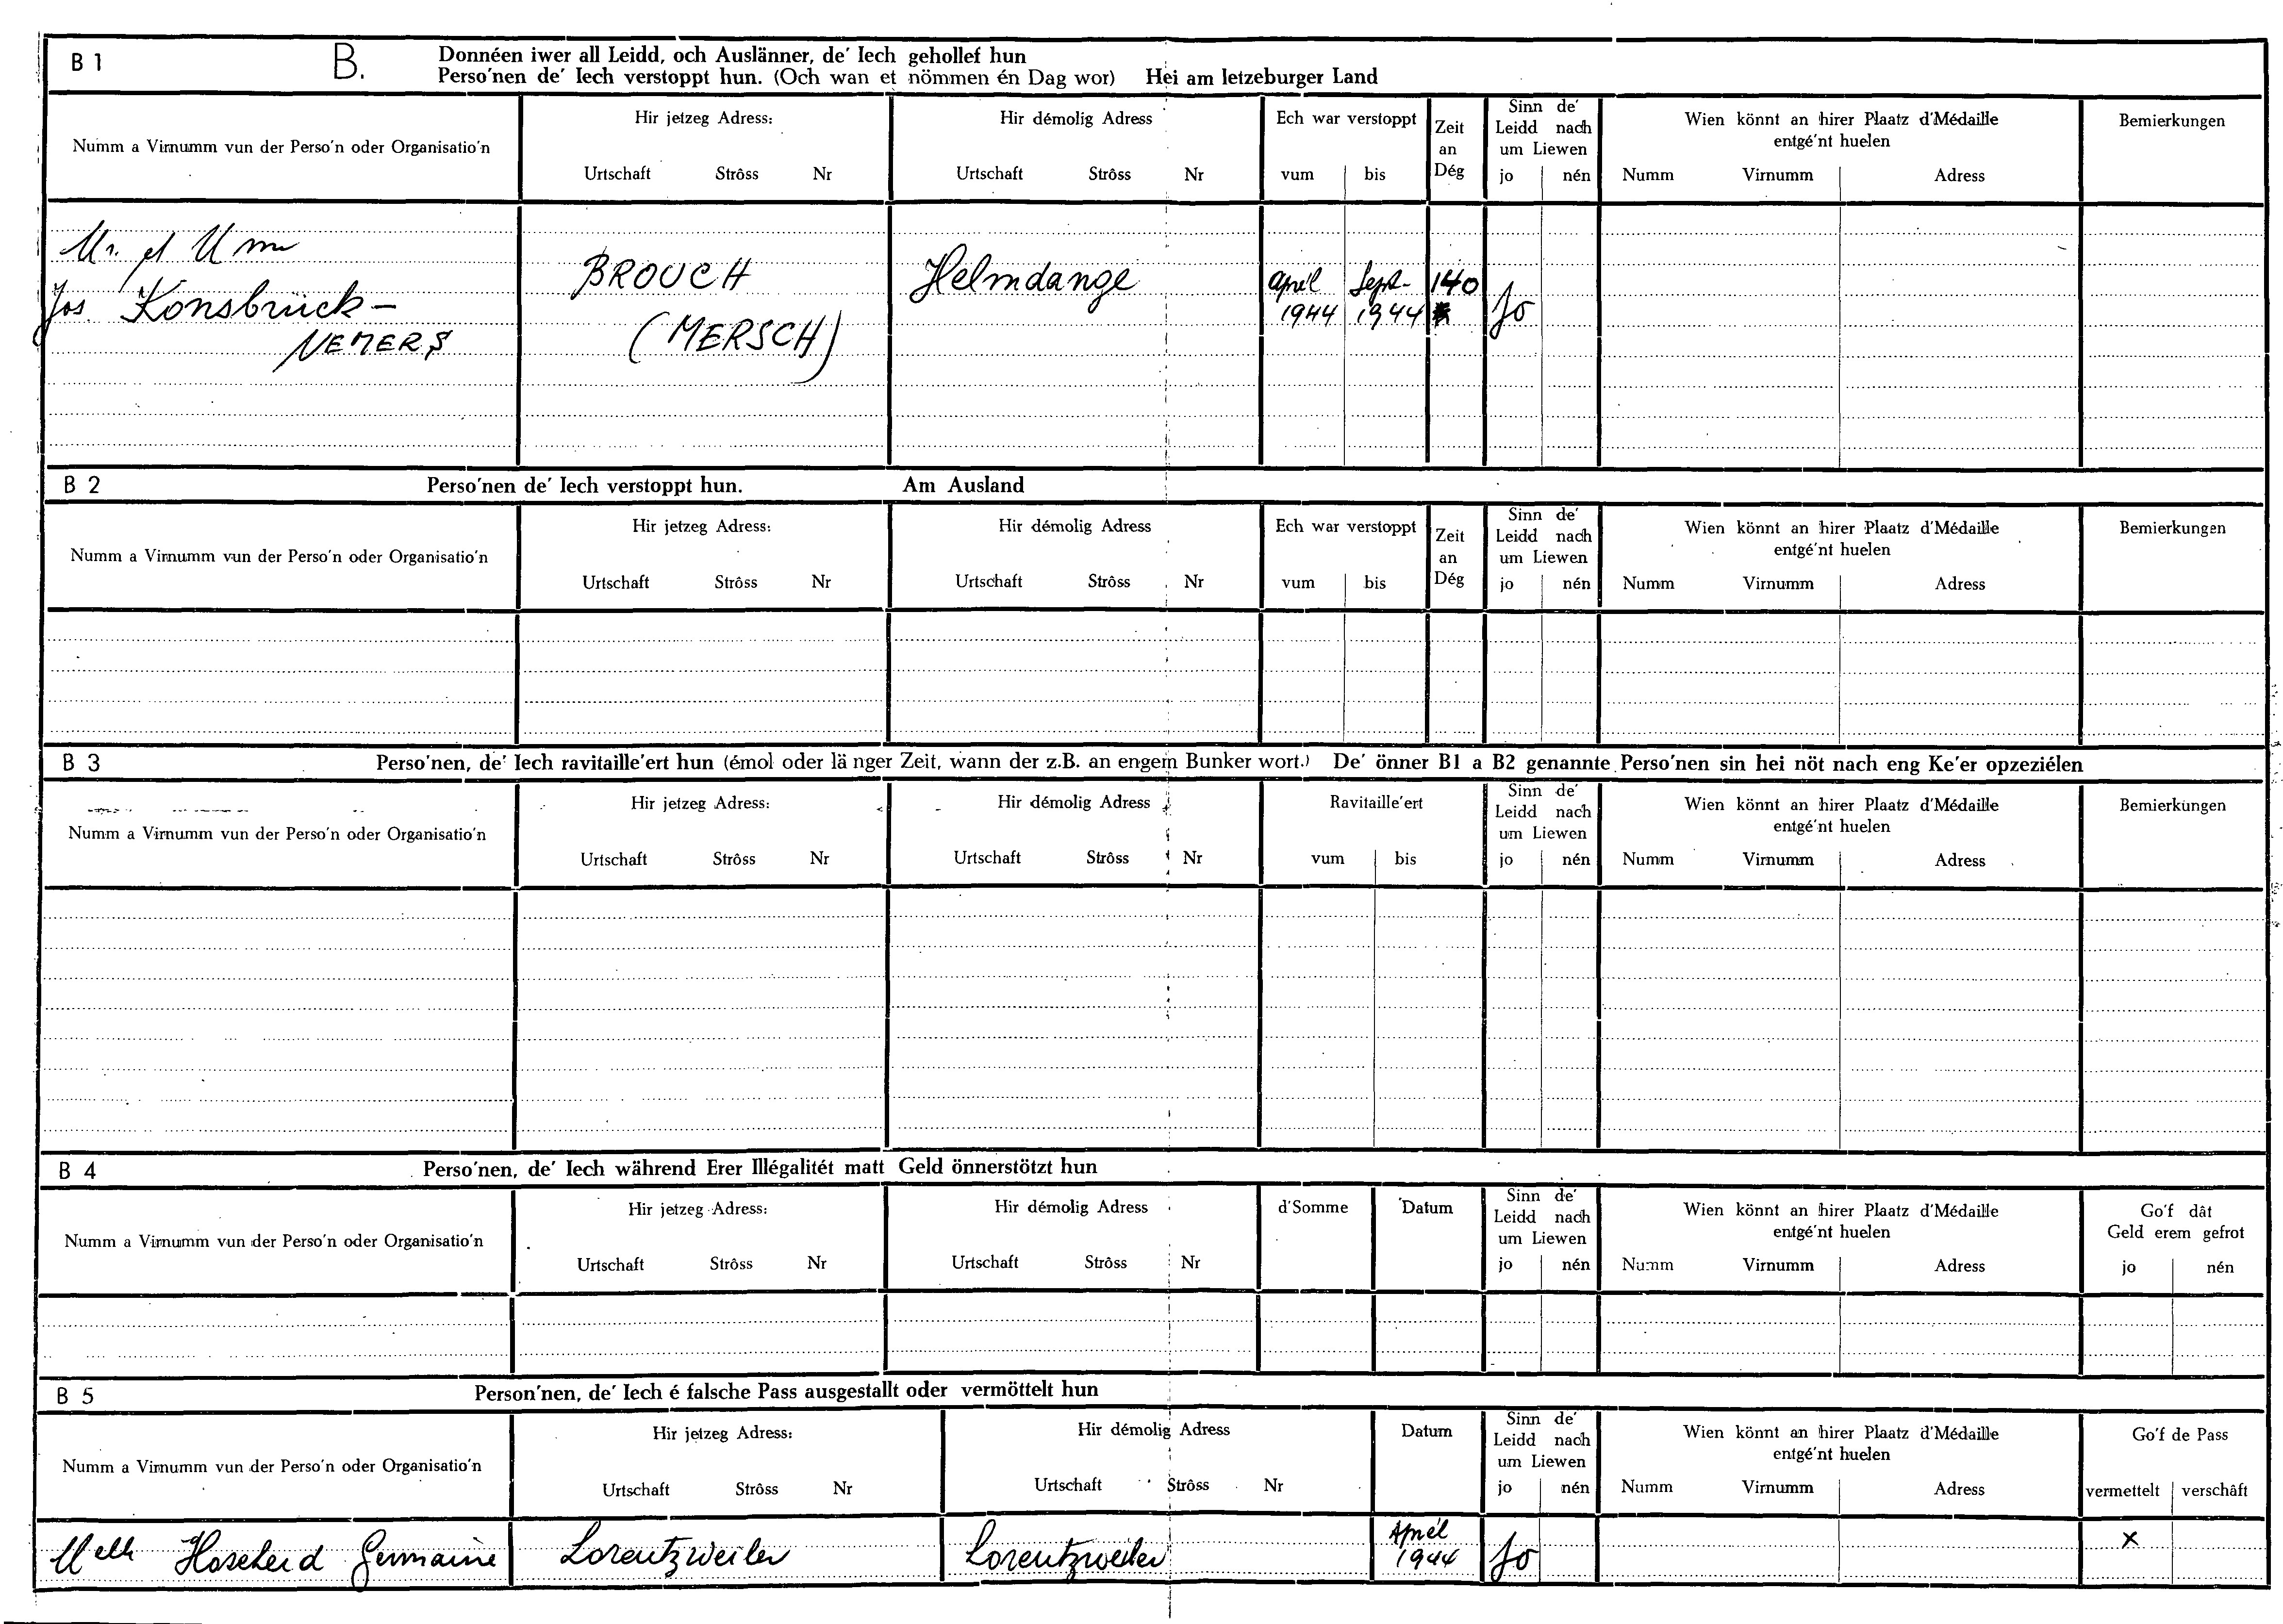 B 1 B. Donnéen iwer all Leidd, och Auslänner, de' Iech gehollef hun
Perso'nen de' Iech verstoppt hun. (Och wan et nömmen én Dag wor) Hei am letzeburger Land
Numm a Virnumm vun der Perso'n oder Organisatio'n
Hir jetzeg Adress:
Urtschaft Strôss Nr
Hir démolig Adress
Urtschaft Strôss Nr
Ech war verstoppt
vum bis
Zeit
an
Dég
Sinn de'
Leidd nach
um Liewen
jo nén
Wien könnt an hirer Plaatz d'Médaille
entgé'nt huelen
Numm Virnumm Adress
Bemierkungen
Mr. et Mme
Jos. Konsbrück –
NEMERS
BROUCH
(MERSCH)
Helmdange
April
1944
Sept.
1944
140
Jo
B 2 Perso'nen de' Iech verstoppt hun. Am Ausland
Numm a Virnumm vun der Perso'n oder Organisatio'n
Hir jetzeg Adress:
Urtschaft Strôss Nr
Hir démolig Adress
Urtschaft Strôss Nr
Ech war verstoppt
vum bis
Zeit
an
Dég
Sinn de'
Leidd nach
um Liewen
jo nén
Wien könnt an hirer Plaatz d'Médaille
entgé'nt huelen
Numm Virnumm Adress
Bemierkungen
B 3 Perso'nen, de' Iech ravitaille'ert hun (émol oder länger Zeit, wann der z.B. an engem Bunker wort.) De' önner B1 a B2 genannte Perso'nen sin hei nöt nach eng Ke'er opzeziélen
Numm a Virnumm vun der Perso'n oder Organisatio'n
Hir jetzeg Adress:
Urtschaft Strôss Nr
Hir démolig Adress
Urtschaft Strôss Nr
Ravitaille'ert
vum bis
Sinn de'
Leidd nach
um Liewen
jo nén
Wien könnt an hirer Plaatz d'Médaille
entgé'nt huelen
Numm Virnumm Adress
Bemierkungen
B 4 Perso'nen, de' Iech während Erer Illégalitét matt Geld önnerstötzt hun
Numm a Virnumm vun der Perso'n oder Organisatio'n
Hir jetzeg Adress:
Urtschaft Strôss Nr
Hir démolig Adress
Urtschaft Strôss Nr
d'Somme
Datum
Sinn de'
Leidd nach
um Liewen
jo nén
Wien könnt an hirer Plaatz d'Médaille
entgé'nt huelen
Numm Virnumm Adress
Go'f dât
Geld erem gefrot
jo nén
B 5 Person'nen, de' Iech é falsche Pass ausgestallt oder vermöttelt hun
Numm a Virnumm vun der Perso'n oder Organisatio'n
Hir jetzeg Adress:
Urtschaft Strôss Nr
Hir démolig Adress
Urtschaft Strôss Nr
Datum
Sinn de'
Leidd nach
um Liewen
jo nén
Wien könnt an hirer Plaatz d'Médaille
entgé'nt huelen
Numm Virnumm Adress
Go'f de Pass
vermettelt verschâft
Melle Hoscheid Germaine
Lorentzweiler
Lorentzweiler
April
1944
Jo
x